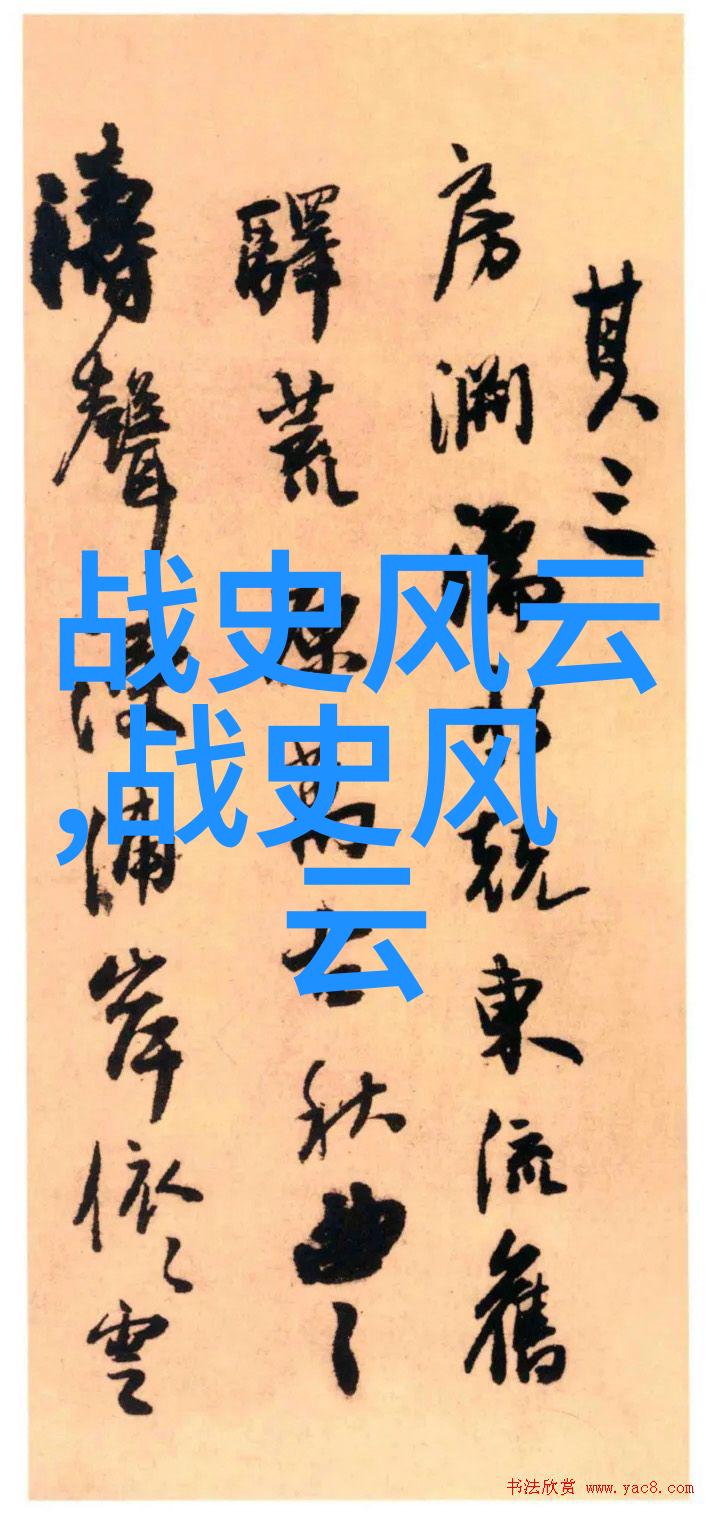 其三
房 東流舊
驛荒 秋曲〻
濤聲 浦岸依〻雲
战史风云
,战史风
云
书法欣赏 www.yac8.com